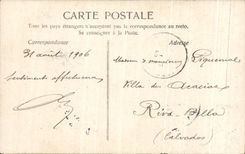 CARTE POSTALE
Tous les pays étrangers n'acceptent pas la correspondance au recto.
Se renseigner à la Poste.
Correspondance
Adresse
31 août 1906
Sentiments affectueux
Villa des Acacias
Riva-Bella
(Calvados)